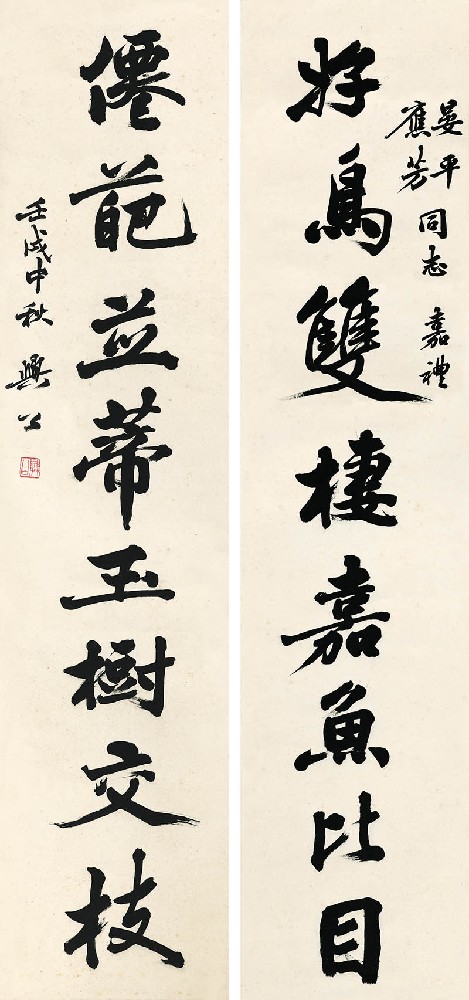 晏平
應芳
同志 嘉禮
好鳥雙棲嘉魚比目
僊葩並蒂玉樹交枝
壬戌中秋 興公